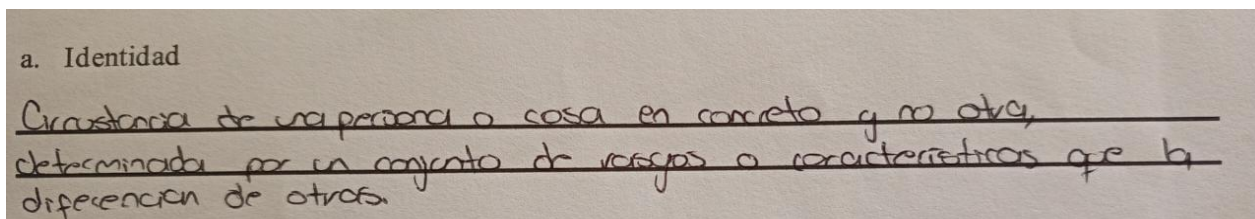 a. Identidad
Circustancia de una persona o cosa en concreto y no otra,
determinada por un conjunto de rasgos o características que la
diferencian de otras.